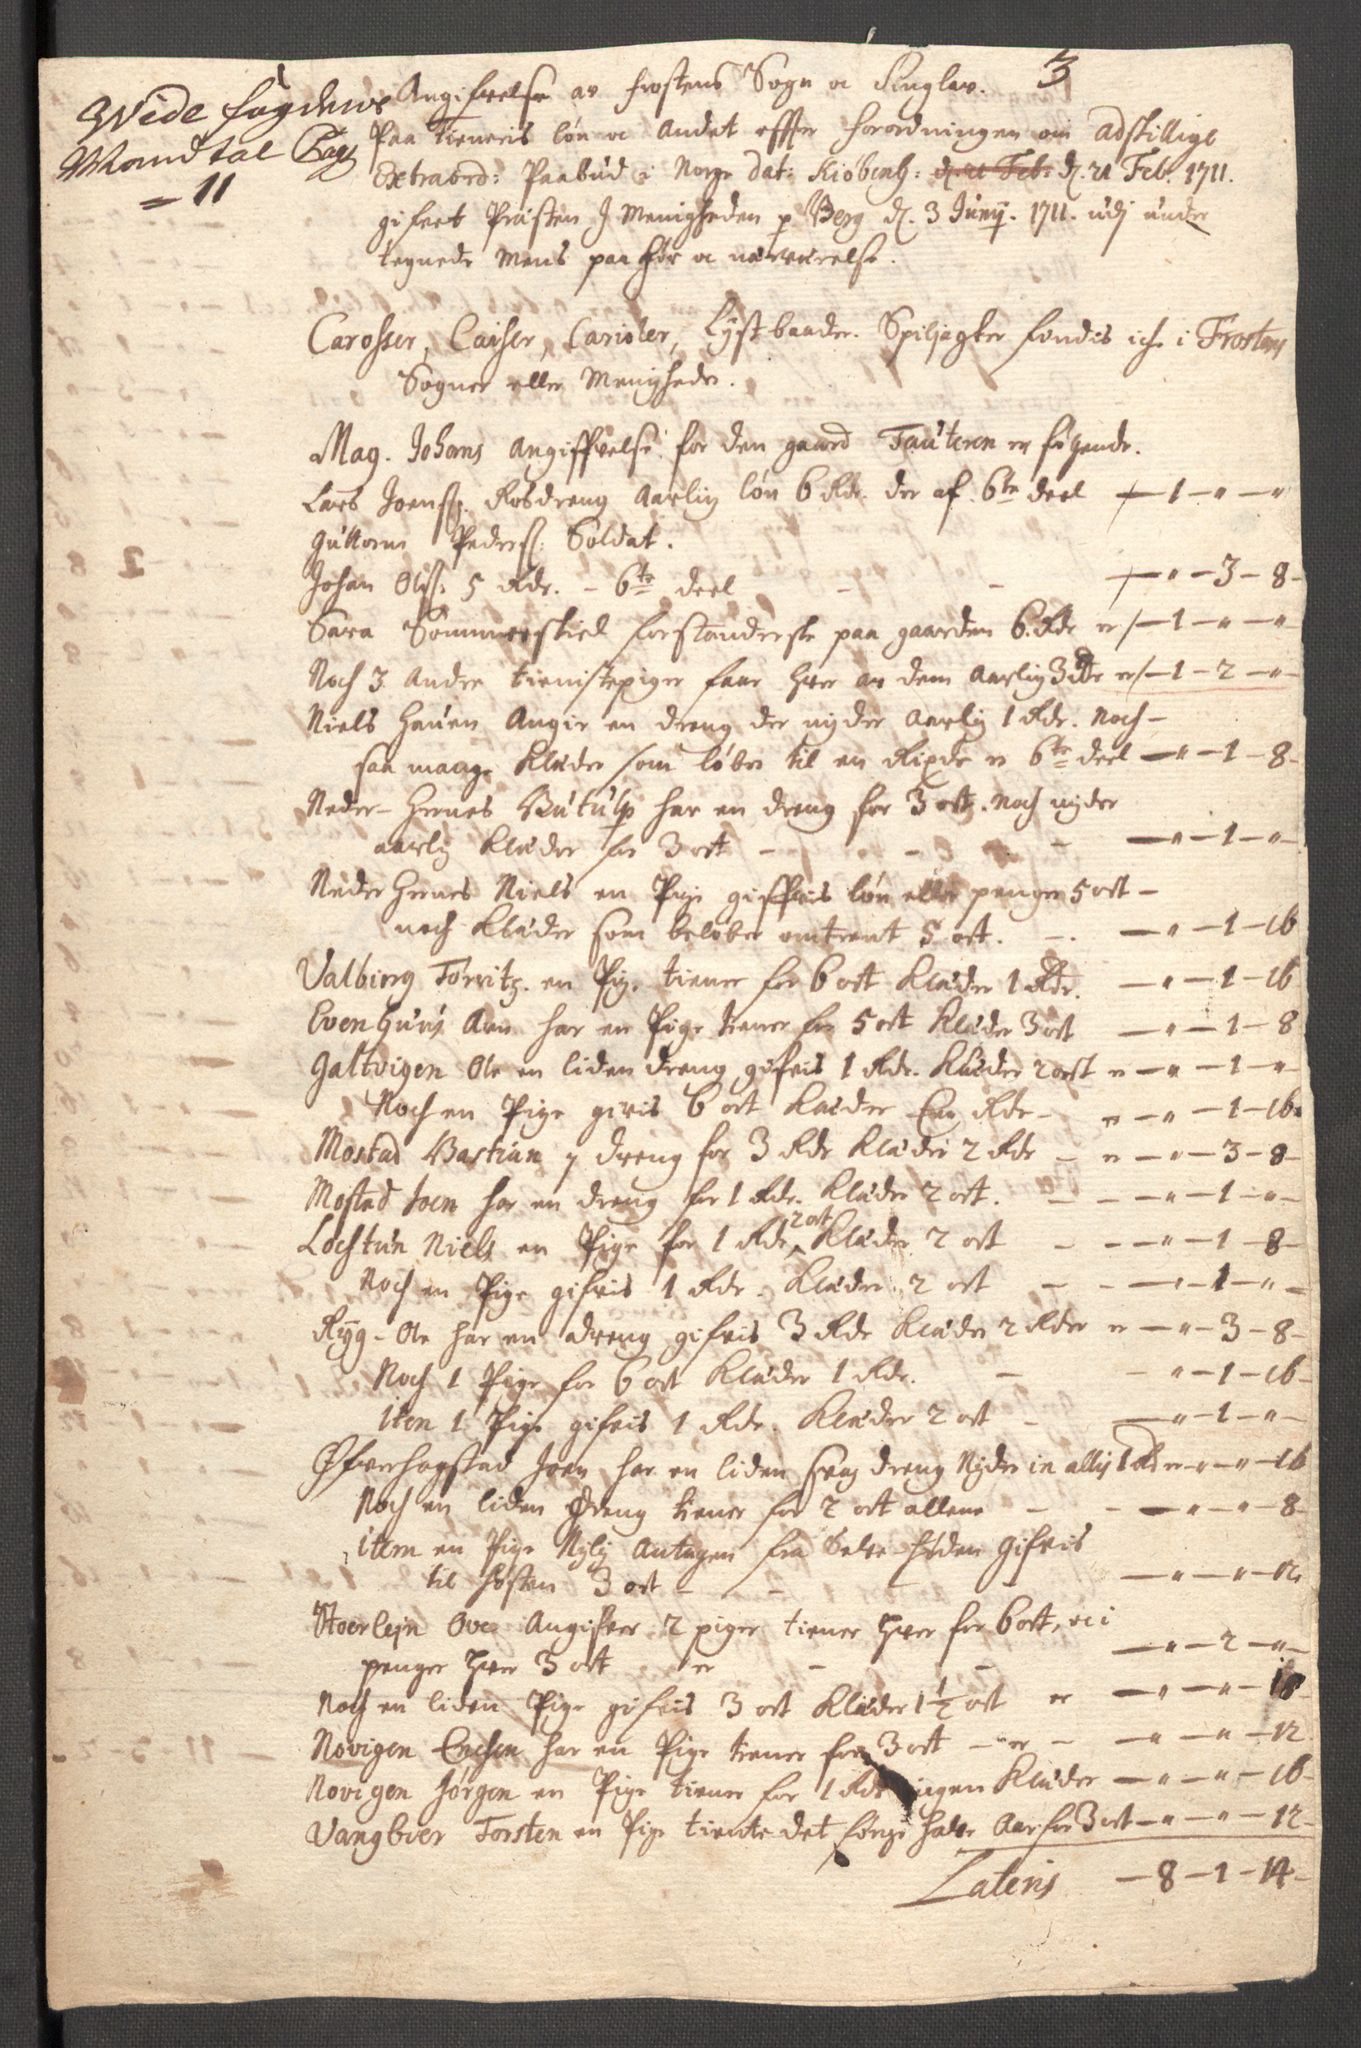 3
Wide fogdens
Mandtal Pag
= 11
Angifvelse av Frostens Sogn
Paa tieneris løn oc Andet effter forordningen om adskillige
Extraord: Paabud i Norge Dat: Kiøbenh: d. 21 Feb: d. 21 Feb. 1711.
gifvet Præsten I Menigheden p Berg d. 3 Junij. 1711. udj under
tegnede Mens paahør oc nærværelse.
Carosser, Caiser, Carioler, Lystbaader. Spiljagter findis iche i Frostens
Sogner eller Menigheder.
Mag. Johans Angiffvelse for den gaard Tauteren er følgende.
Lars Joenss. Rosdreng Aarlig løn 6 Rdr. der af 6te deel — 1 - " - "
Guttorm Peders: Soldat.
Johan Olss. 5 Rdr. - 6te deel - - — " - 3 - 8 -
Sara Sommerskiel forstanderske paa gaarden 6 Rdr er — 1 - " - "
Noch 3 Andre tienistepiger faar hver av dem Aarlig 3 Rdr er — 1 - 2 - " -
Niels Hauen Angir en dreng der nyder Aarlig 1 Rdr. Noch -
saa mange Klæder som løber til en Rixdr er 6te deel — " - 1 - 8 -
Neder-Hernes Butulp har en dreng for 3 ort. Noch nyder
aarlig Klæder for 3 ort - - - — " - 1 - " -
Neder Hernes Niels en Pige giffvis løn eller penger 5 ort -
noch Klæder som beløber omtrent 5 ort. - — " - 1 - 16
Valberg Torritz. en Pige tiener for 6 ort Klæder 1 Rdr. — " - 1 - 16
Even har en Pige tiener for 5 ort Klæder 3 ort — " - 1 - 8
Galtvigen Ole en liden dreng gifvis 1 Rdr. Klæder 2 ort er — " - 1 - "
Noch en Pige givis 6 ort Klæder En Rdr - er — " - 1 - 16
Mostad Bastian 1 dreng for 3 Rdr Klæder 2 Rdr - er — " - 3 - 8 -
Mostad Joen har en dreng for 1 Rdr. Klæder 2 ort. - — " - 1 - " -
Lochtun Niels en Pige for 1 Rdr 2 ort Klæder 2 ort - — " - 1 - 8 -
Noch en Pige gifvis 1 Rdr. Klæder 2 ort - — " - 1 - " -
Rygg-Ole har en dreng gifvis 3 Rdr Klæder 2 Rdr er — " - 3 - 8 -
Noch 1 Pige for 6 ort Klæder 1 Rdr. - - " - 1 - 16 -
iten 1 Pige gifvis 1 Rdr. Klæder 2 ort - — " - 1 - " -
Øfverhogstad Joen har en liden svag dreng Nyder in allis 1 Rd er - " - " - 16
Noch en liden dreng tiener for 2 ort allene - — " - " - 8 -
item en Pige Nylig Antagen fra gifvis
til høsten 3 ort - - - — " - " - 12
Stoerlejn Ove Angifver 2 piger tiener hver for 6 ort, er i
penger hver 3 ort er - - — " - 2 - " -
Noch en liden Pige gifvis 3 ort Klæder 1 1/2 ort er — " - " - 18 -
Novigen Erchen har en Pige tiener for 3 ort - er - — " - " - 12
Novigen Jørgen en Pige tiener for 1 Rdr ingen Klæder — " - " - 16 -
Vangbier Torsten en Pige tiente det halve Aar for 3 ort — " - " - 12 -
Lateris - 8 - 1 - 14 -